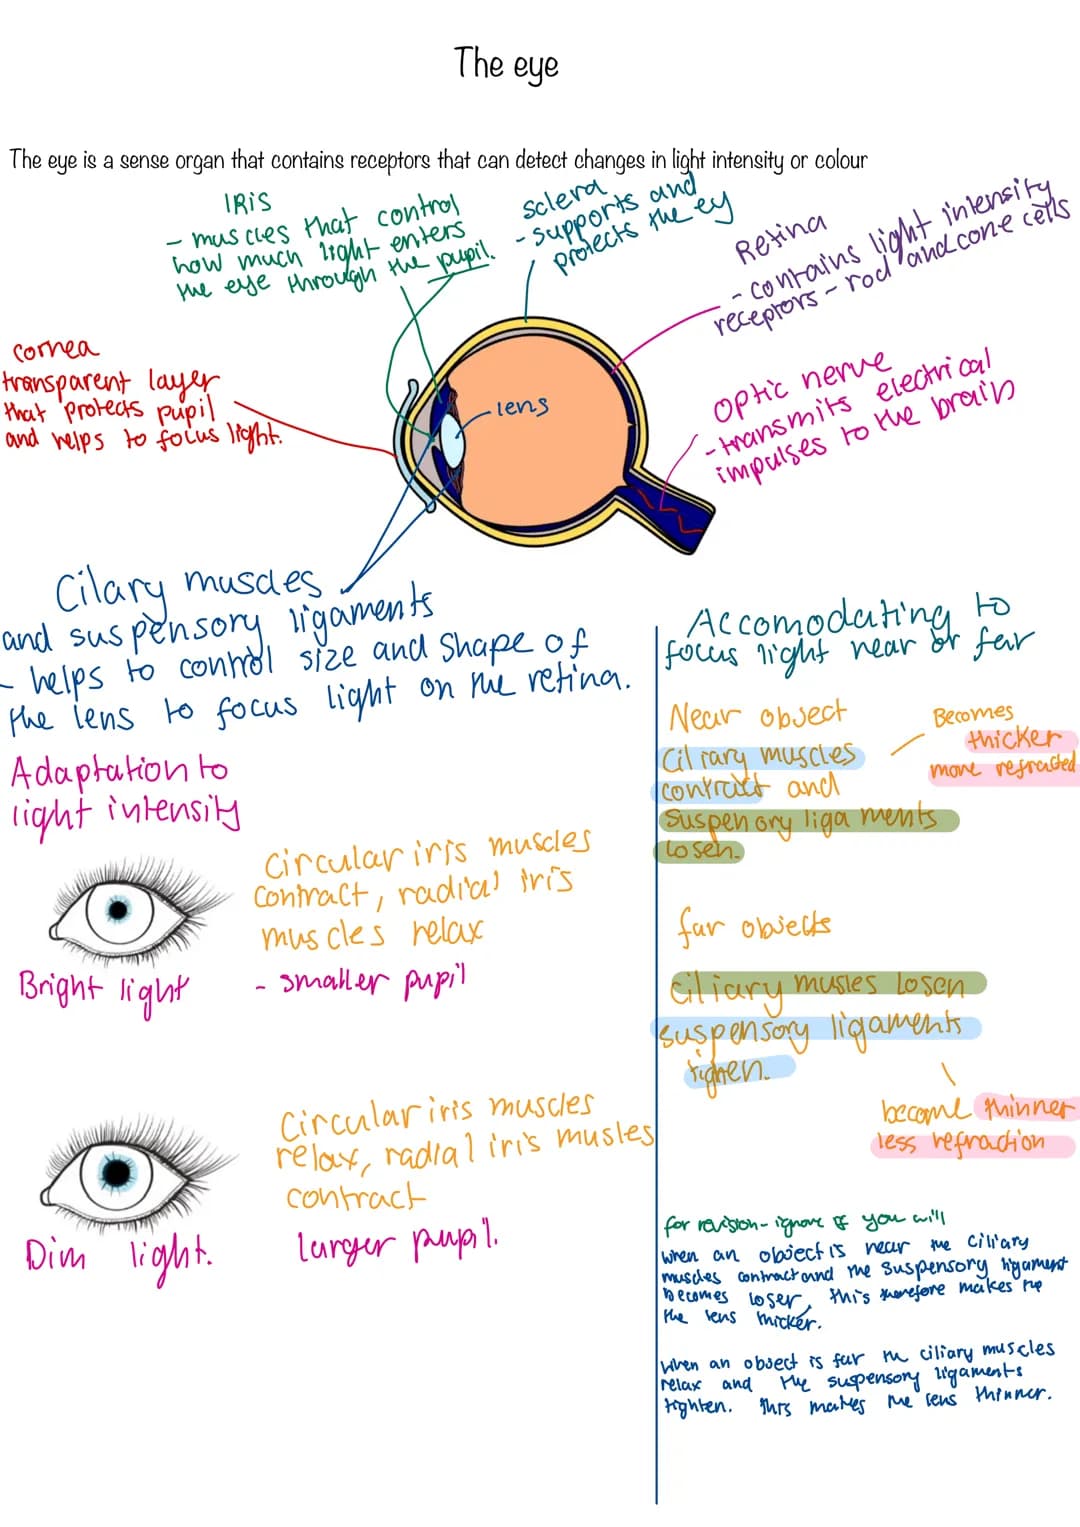 The eye
The eye is a sense organ that contains receptors that can detect changes in light intensity or colour
IRis
- muscles that control
how much light enters
the eye through the pupil.
sclera
- supports and
protects the ey
Retina
- contains light intensity
receptors - rod and cone cells
cornea
transparent layer
that protects pupil
and helps to focus light.
lens
Optic nerve
- transmits electrical
impulses to the brain
Cilary muscles
and suspensory ligaments
- helps to control size and shape of
the lens to focus light on the retina.
Adaptation to
light intensity
Circular iris muscles
contract, radial iris
muscles relax
- smaller pupil
Bright light
Circular iris muscles
relax, radial iris musles
contract
larger pupil.
Dim light.
Accomodating to
focus light near or far
Near object
Cilrary muscles
contract and
suspensory ligaments
losen.
Becomes
thicker
more refracted
far objects
ciliary musles losen
suspensory ligaments
tighten.
become thinner
less refraction
for revision - ignore if you will
when an object is near the ciliary
muscles contract and the suspensory ligament
becomes loser, this therefore makes
the lens thicker.
when an object is far the ciliary muscles
relax and the suspensory ligaments
tighten. this makes the lens thinner.